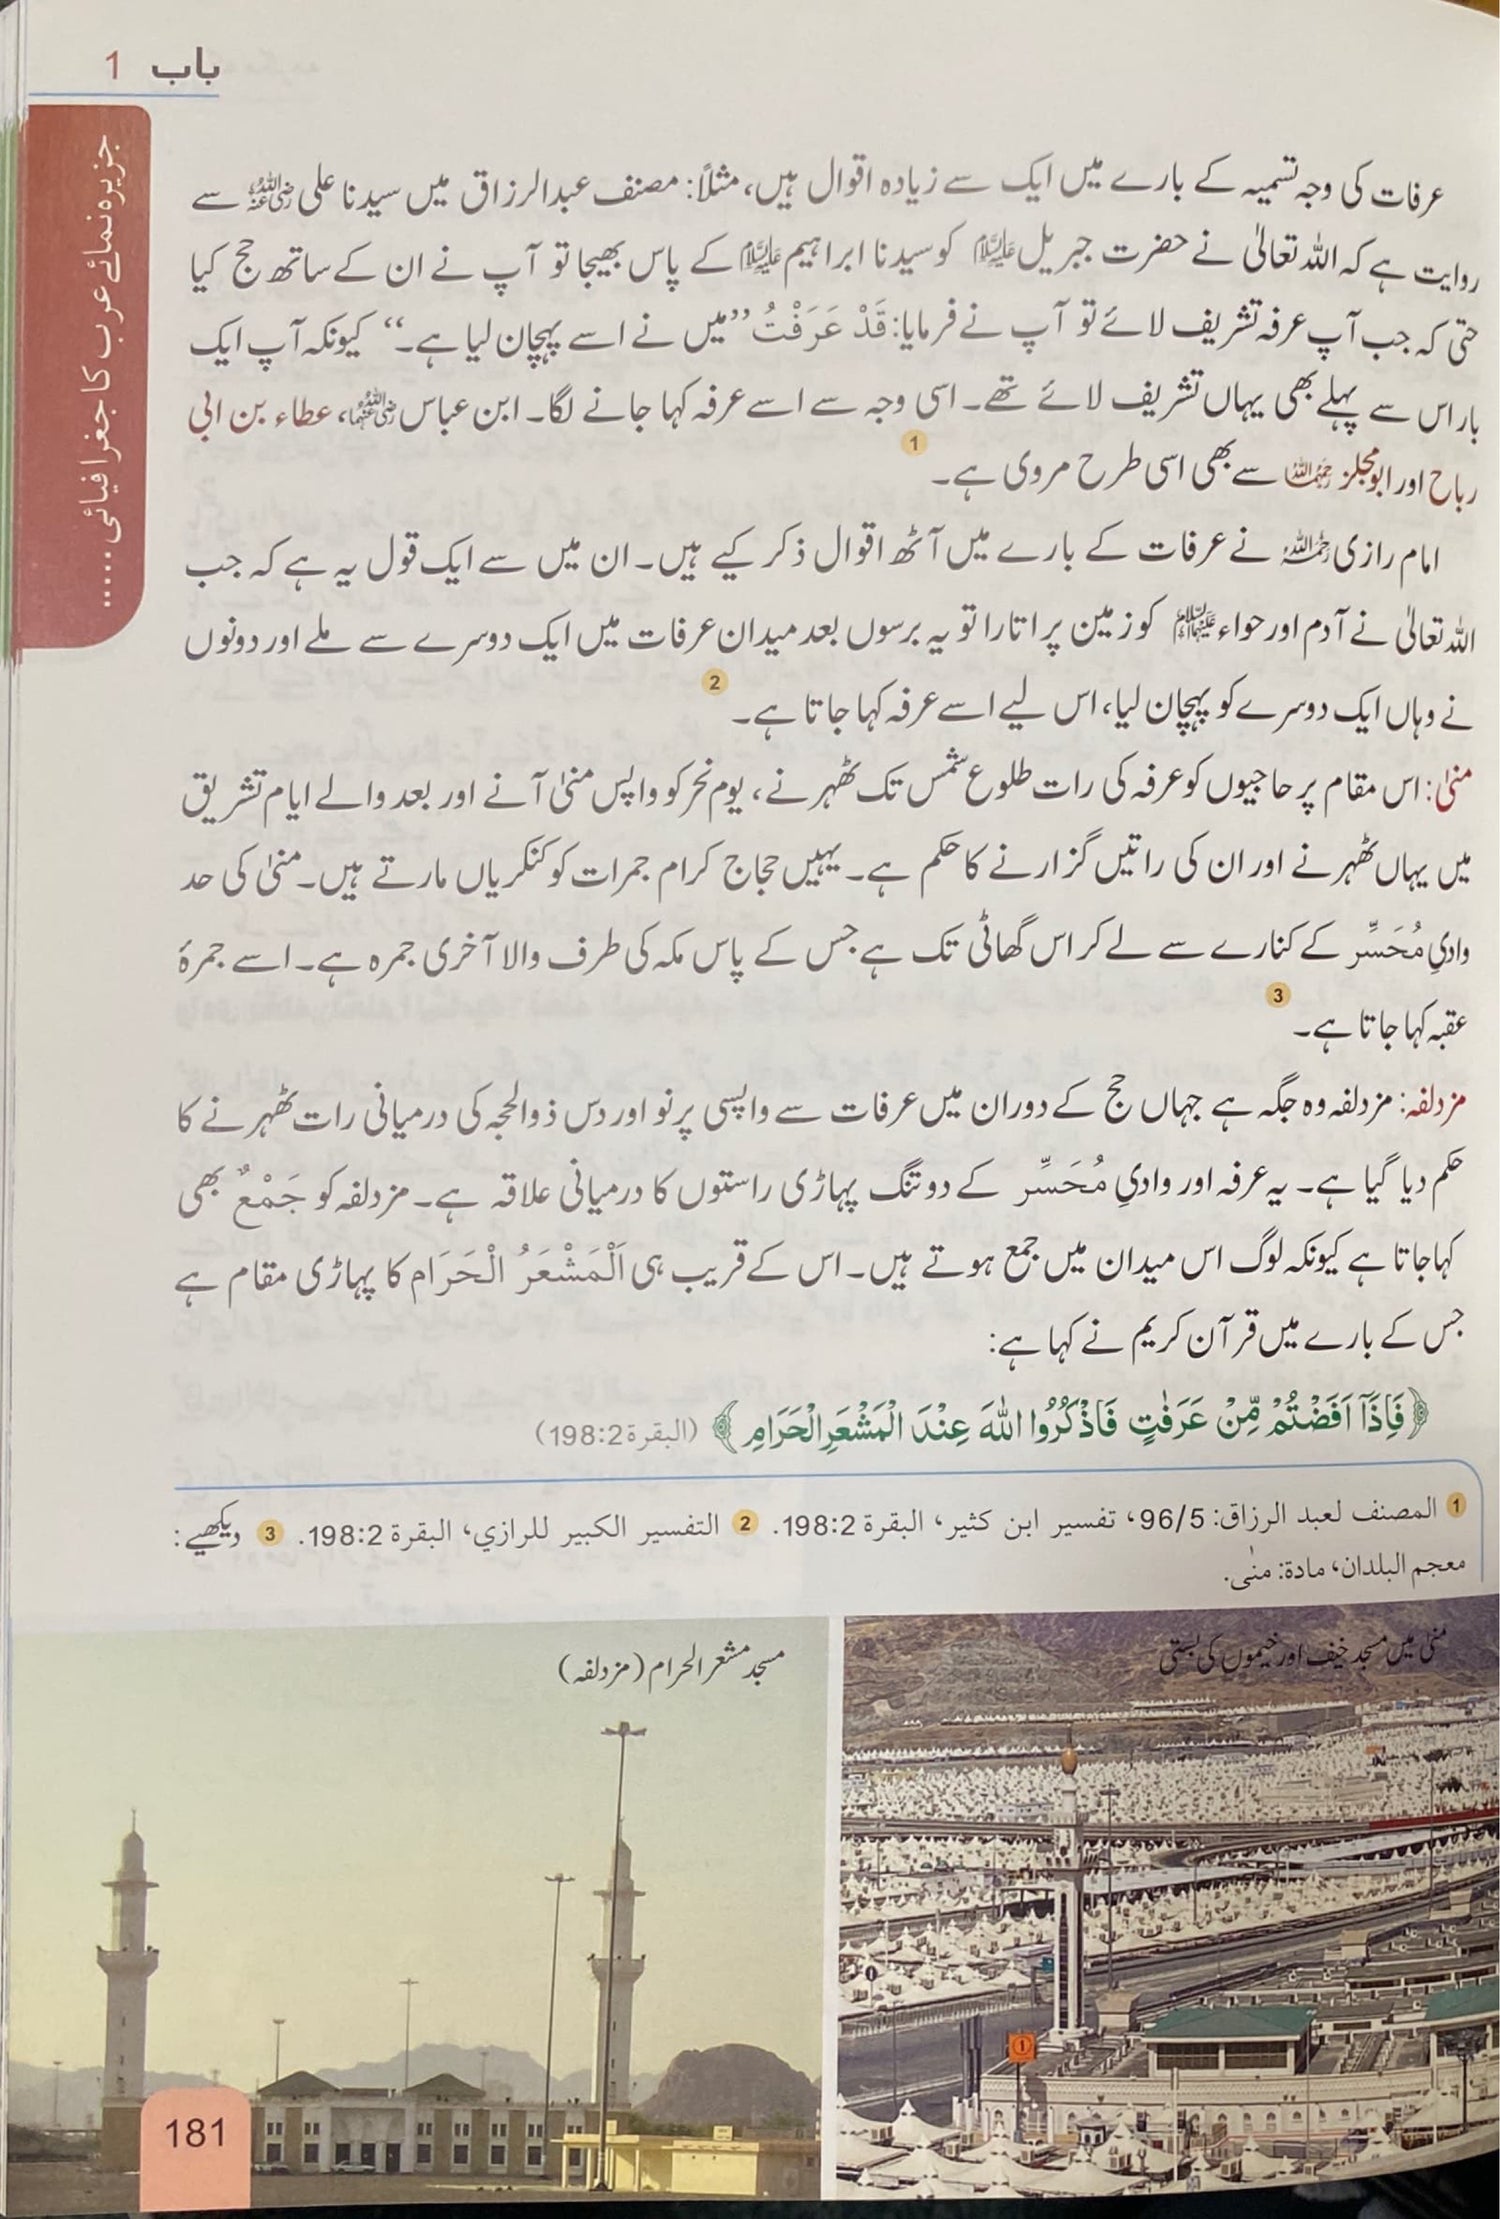 باب 1
جزیرہ نمائے عرب کا جغرافیائی.....
عرفات کی وجہ تسمیہ کے بارے میں ایک سے زیادہ اقوال ہیں، مثلاً: مصنف عبدالرزاق میں سیدنا علی رضی اللہ عنہ سے
روایت ہے کہ اللہ تعالیٰ نے حضرت جبریل علیہ السلام کو سیدنا ابراہیم علیہ السلام کے پاس بھیجا تو آپ نے ان کے ساتھ حج کیا
حتی کہ جب آپ عرفہ تشریف لائے تو آپ نے فرمایا: قَدْ عَرَفْتُ ”میں نے اسے پہچان لیا ہے۔“ کیونکہ آپ ایک
بار اس سے پہلے بھی یہاں تشریف لائے تھے۔ اسی وجہ سے اسے عرفہ کہا جانے لگا۔ ابن عباس رضی اللہ عنہما، عطاء بن ابی
رباح اور ابومجلز رحمہما اللہ سے بھی اسی طرح مروی ہے۔ 1
امام رازی رحمہ اللہ نے عرفات کے بارے میں آٹھ اقوال ذکر کیے ہیں۔ ان میں سے ایک قول یہ ہے کہ جب
اللہ تعالیٰ نے آدم اور حواء علیہما السلام کو زمین پر اتارا تو یہ برسوں بعد میدان عرفات میں ایک دوسرے سے ملے اور دونوں
نے وہاں ایک دوسرے کو پہچان لیا، اس لیے اسے عرفہ کہا جاتا ہے۔ 2
منیٰ: اس مقام پر حاجیوں کو عرفہ کی رات طلوع شمس تک ٹھہرنے، یوم نحر کو واپس منیٰ آنے اور بعد والے ایام تشریق
میں یہاں ٹھہرنے اور ان کی راتیں گزارنے کا حکم ہے۔ یہیں حجاج کرام جمرات کو کنکریاں مارتے ہیں۔ منیٰ کی حد
وادیِ مُحَسِّر کے کنارے سے لے کر اس گھاٹی تک ہے جس کے پاس مکہ کی طرف والا آخری جمرہ ہے۔ اسے جمرۂ
عقبہ کہا جاتا ہے۔ 3
مزدلفہ: مزدلفہ وہ جگہ ہے جہاں حج کے دوران میں عرفات سے واپسی پر نو اور دس ذوالحجہ کی درمیانی رات ٹھہرنے کا
حکم دیا گیا ہے۔ یہ عرفہ اور وادیِ مُحَسِّر کے دو تنگ پہاڑی راستوں کا درمیانی علاقہ ہے۔ مزدلفہ کو جَمْعٌ بھی
کہا جاتا ہے کیونکہ لوگ اس میدان میں جمع ہوتے ہیں۔ اس کے قریب ہی اَلْمَشْعَرُ الْحَرَام کا پہاڑی مقام ہے
جس کے بارے میں قرآن کریم نے کہا ہے:
﴿فَاِذَآ اَفَضْتُمْ مِّنْ عَرَفٰتٍ فَاذْكُرُوا اللّٰهَ عِنْدَ الْمَشْعَرِ الْحَرَامِ﴾ (البقرة 198:2)
1 المصنف لعبد الرزاق: 96/5، تفسير ابن كثير، البقرة 198:2. 2 التفسير الكبير للرازي، البقرة 198:2. 3 دیکھیے:
معجم البلدان، مادة: منٰى.
منیٰ میں مسجد خیف اور خیموں کی بستی
مسجد مشعر الحرام (مزدلفہ)
181